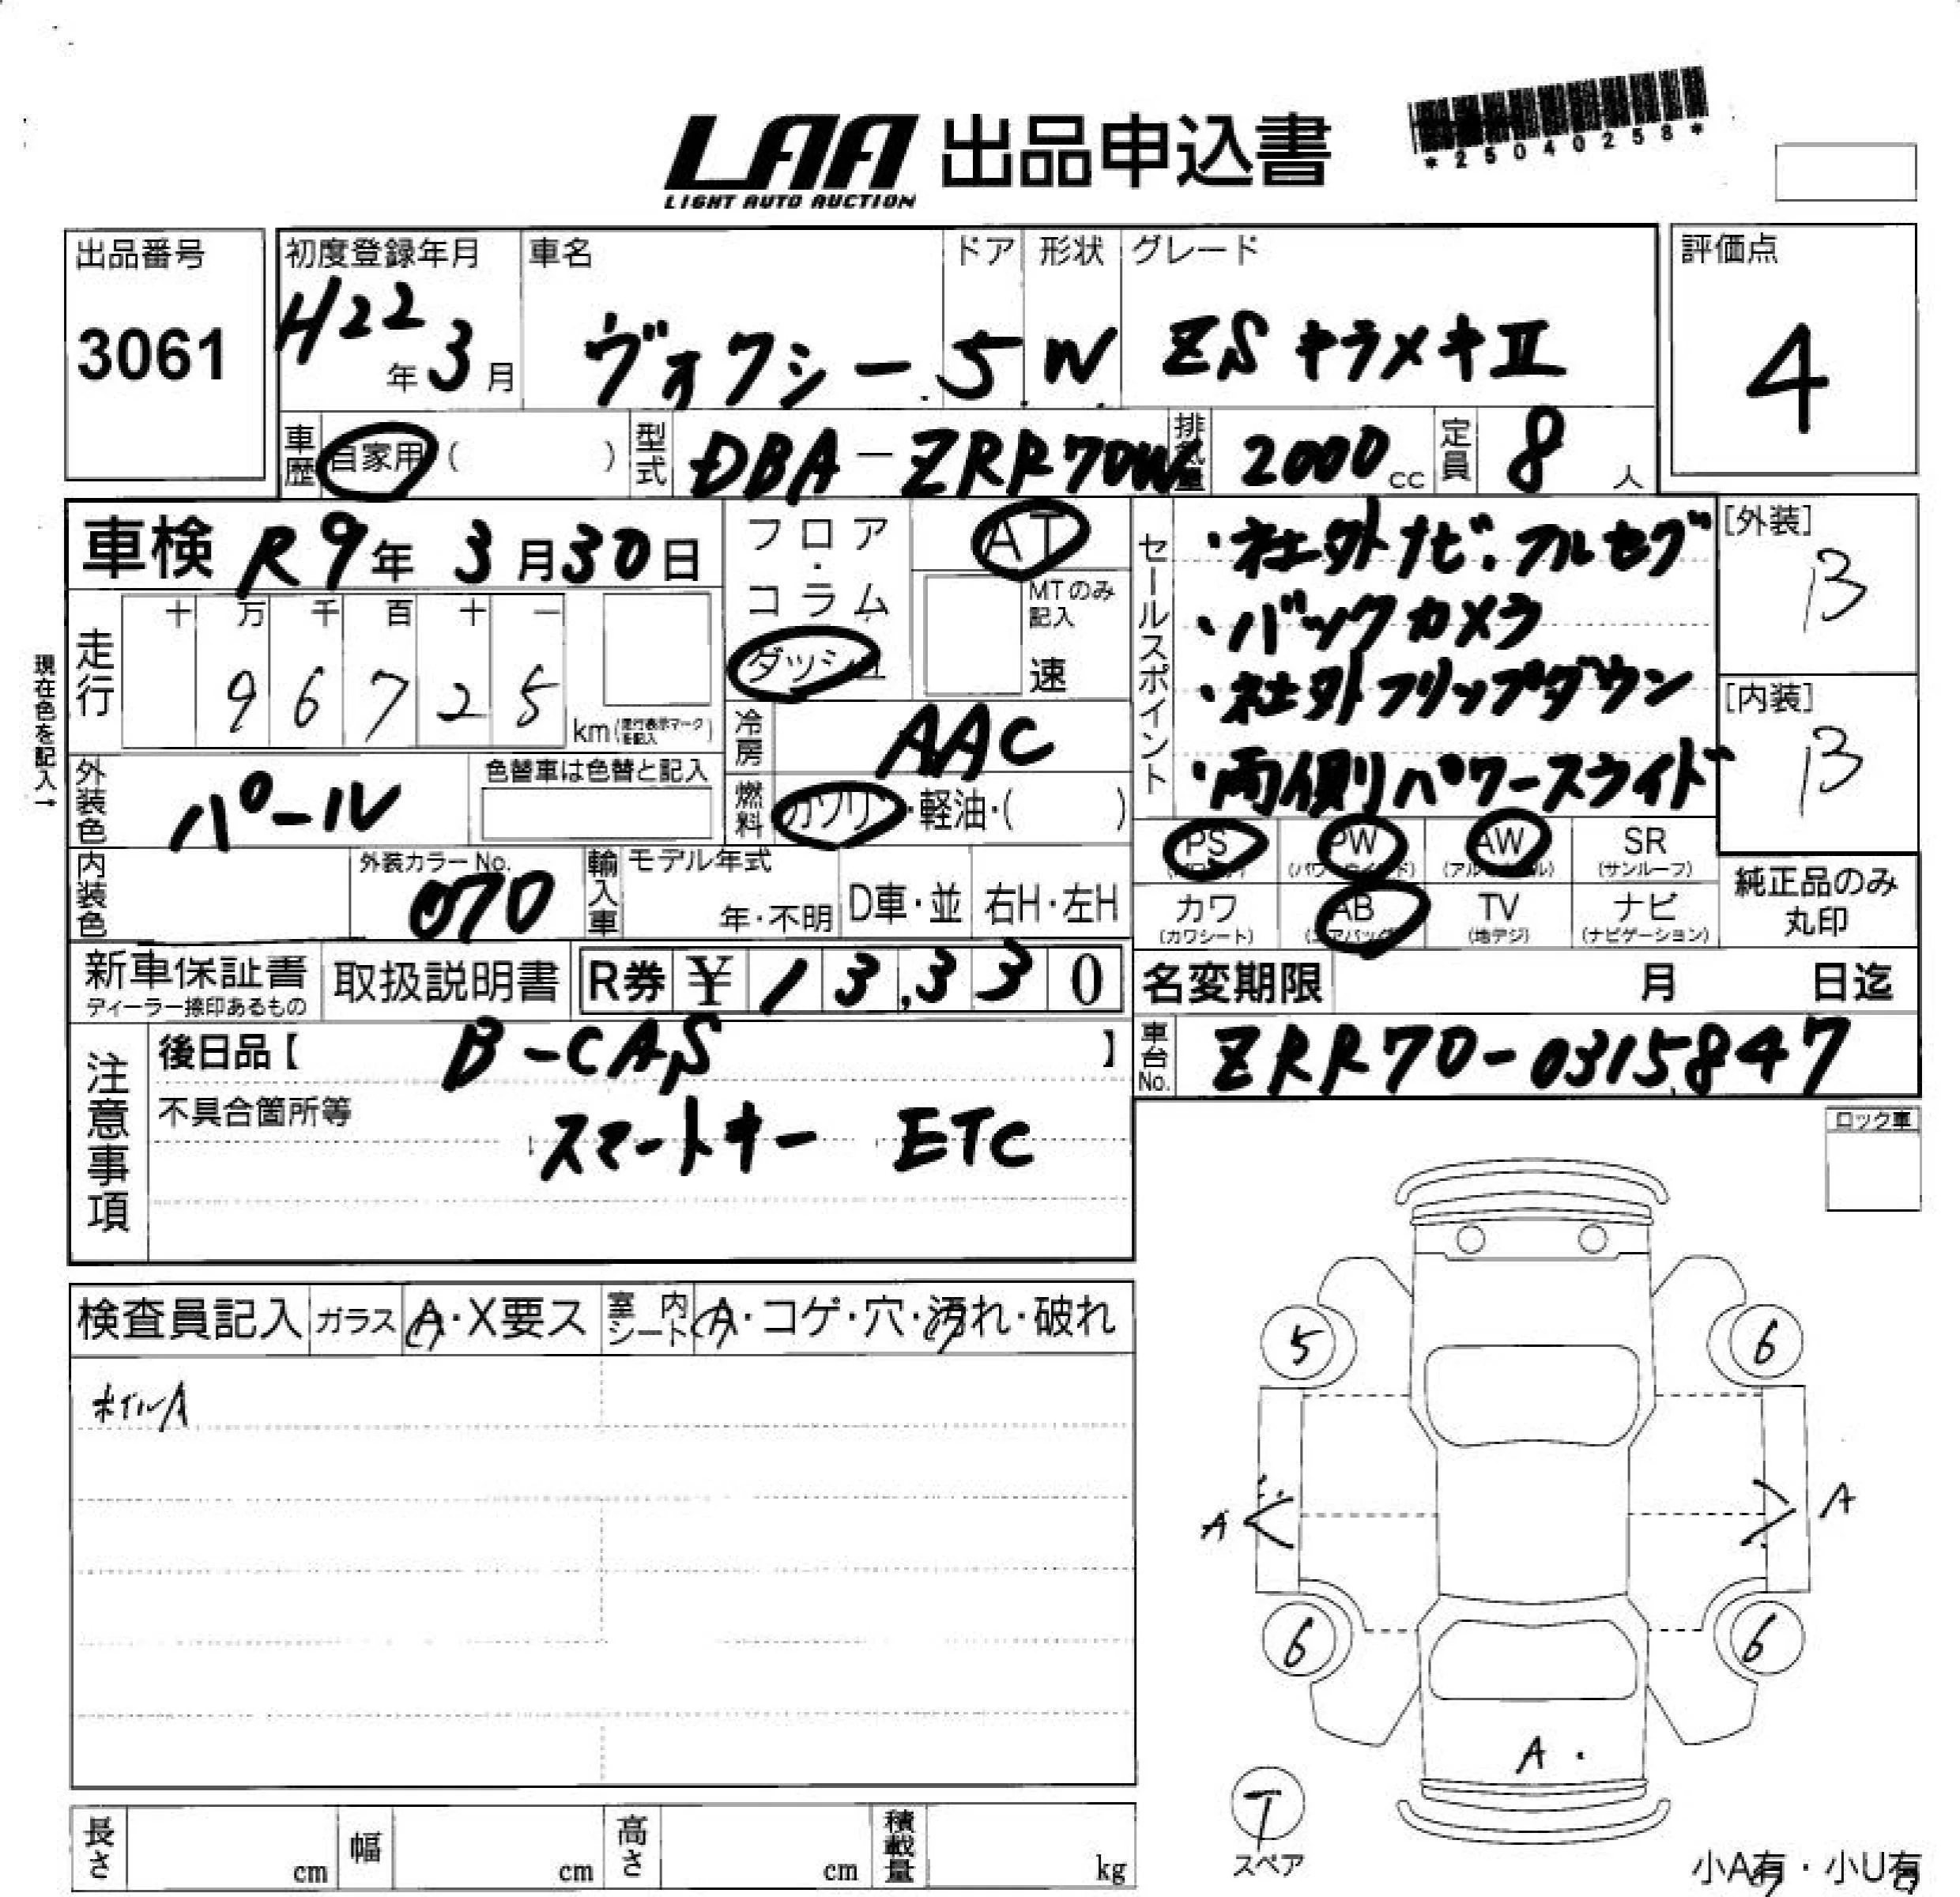 LAA 出品申込書
LIGHT AUTO AUCTION
*25040258*
出品番号
3061
初度登録年月
H22年3月
車名
ヴォクシー
ドア
5
形状
W
グレード
ZSキラメキⅡ
評価点
4
車歴 自家用 ( )
型式 DBA-ZRR70W
排気量 2000cc
定員 8人
車検 R9年3月30日
フロア・コラム
ダッシュ
AT
MTのみ記入
速
セールスポイント
・社外ナビ.フルセグ
・バックカメラ
・社外フリップダウン
・両側パワースライド
[外装]
B
[内装]
B
現在色を記入→
走行
十 万 千 百 十 一
9 6 7 2 5
km (走行表示マークを記入)
冷房 AAC
燃料 ガソリン・軽油・( )
外装色 パール
色替車は色替と記入
内装色
外装カラーNo.
070
輸入車
モデル年式
年・不明
D車・並
右H・左H
PS PW AW SR
(サンルーフ)
カワ AB TV ナビ
(カワシート) (エアバッグ) (地デジ) (ナビゲーション)
純正品のみ
丸印
新車保証書
ディーラー捺印あるもの
取扱説明書
R券 ¥13,330
名変期限 月 日迄
注意事項
後日品【 B-CAS 】
不具合箇所等
スマートキー ETC
車台No. ZRR70-0315847
ロック車
検査員記入
ガラス A・X要ス
室内シート A・コゲ・穴・汚れ・破れ
ホイルA
5 6
A A
6 6
A
T
スペア
長さ cm
幅 cm
高さ cm
積載量 kg
小A有・小U有